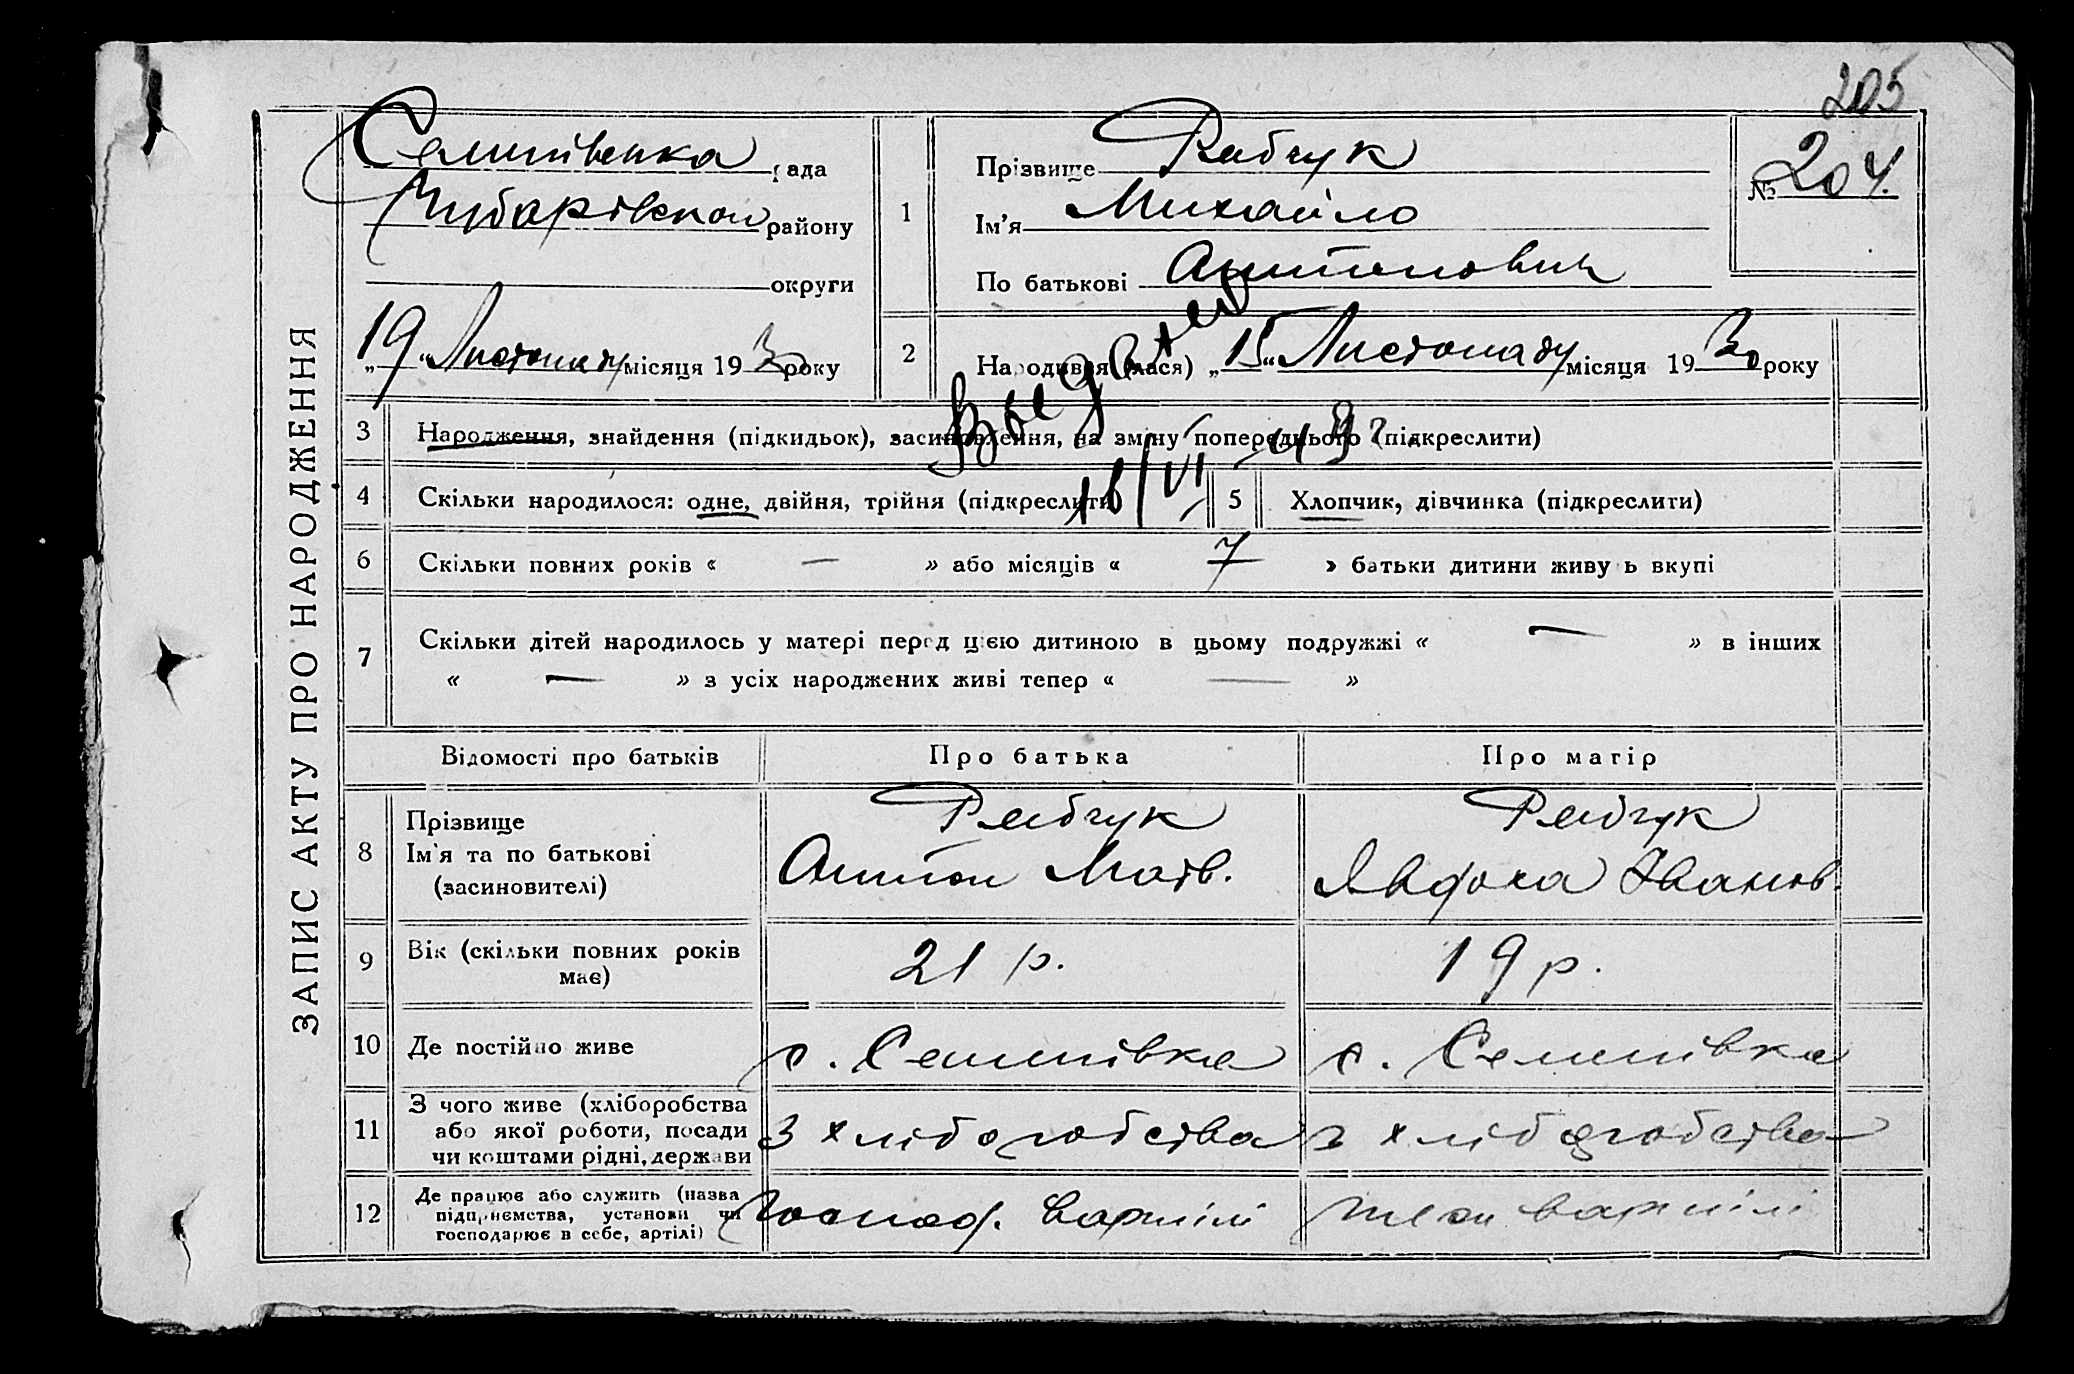 205
ЗАПИС АКТУ ПРО НАРОДЖЕННЯ
Семенівська рада
Чубарівськой району
округи
„19“ Листопаду місяця 1930 року
1
Прізвище Рябчук
Ім'я Михайло
По батькові Антонович
№ 204.
2
Народився (лася) „15“ Листопаду місяця 1930 року
3
Народження, знайдення (підкидьок), засиновлення, на зміну попереднього (підкреслити)
4
Скільки народилося: одне, двійня, трійня (підкреслити)
5
Хлопчик, дівчинка (підкреслити)
16/VI 49 г.
6
Скільки повних років « — » або місяців « 7 » батьки дитини живуть вкупі
7
Скільки дітей народилось у матері перед цією дитиною в цьому подружжі « — » в інших
« — » з усіх народжених живі тепер « — »
Відомості про батьків
Про батька
Про матір
8
Прізвище
Ім'я та по батькові
(засиновителі)
Рябчук
Антон Матв.
Рябчук
Явдоха Іванов.
9
Вік (скільки повних років
має)
21 р.
19 р.
10
Де постійно живе
с. Семенівка
с. Семенівка
11
З чого живе (хліборобства
або якої роботи, посади
чи коштами рідні, держави
З хліборобства
З хліборобства
12
Де працює або служить (назва
підприємства, установи чи
господарює в себе, артілі)
Господ. в артілі
Теж в артілі